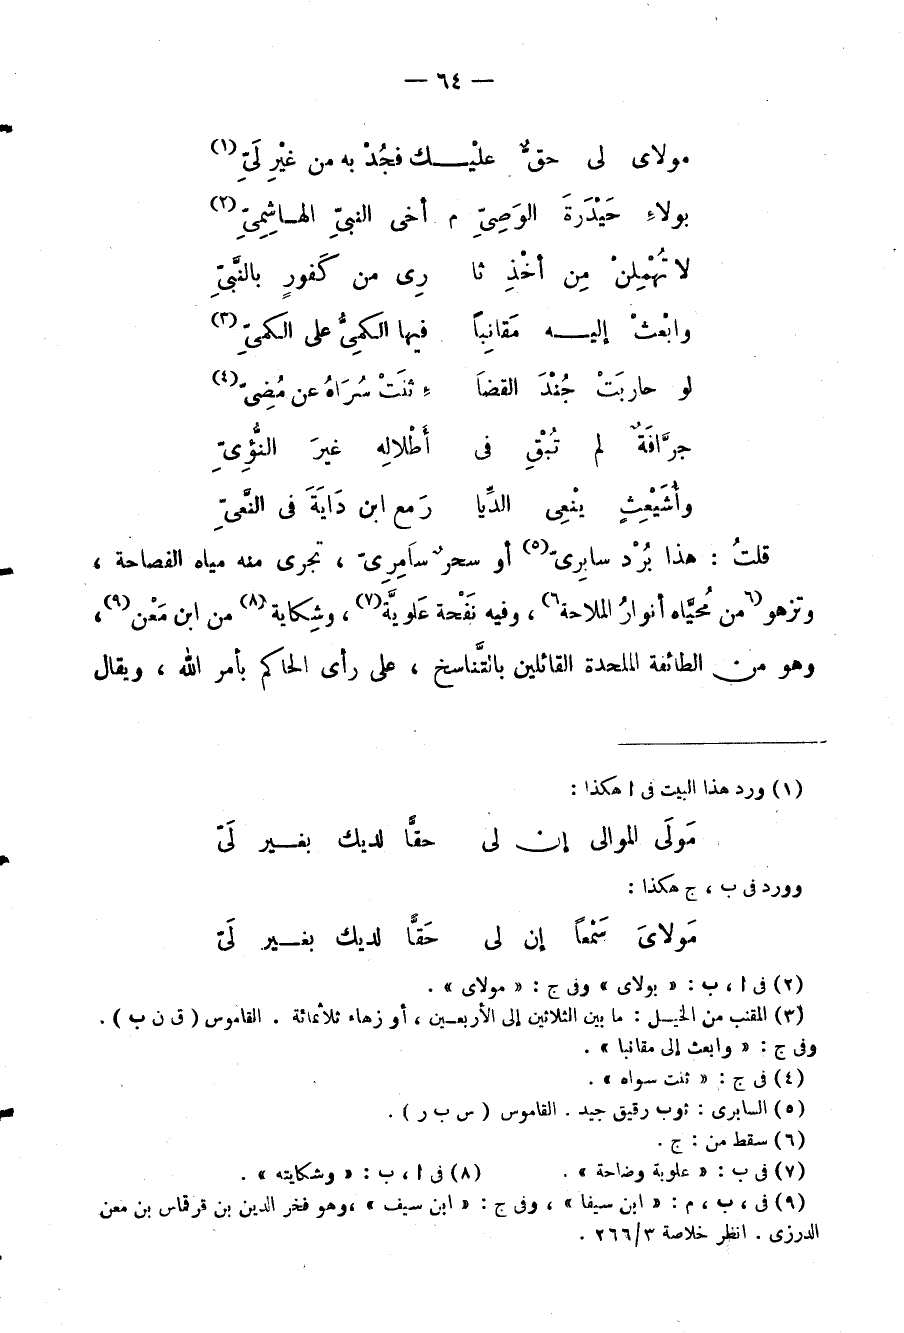 — ٦٤ —
مولاى لى حقٌّ عليْــك فجُدْ به من غيْرِ لَىِّ (١)
بولاءِ حَيْدَرةَ الوَصِىِّ م أخى النبىِّ الهـاشِمِىِّ (٢)
لا تُهْمِلنْ مِن أخْذِ ثا رِى من كَفورٍ بالنَّبىِّ
وابْعثْ إليــه مَقانِباً فيها الكمِىُّ على الكمِىِّ (٣)
لو حاربَتْ جُنْدَ القضَا ءِ ثنَتْ سُرَاهُ عن مُضِىِّ (٤)
جرَّافَةٌ لم تُبْقِ فى أَطْلالِه غيرَ النُّؤِىِّ
وأُشَيْعِثٍ ينْعِى الدِّيا رَ مع ابن دَايَةَ فى النَّعىِّ
قلتُ : هذا بُرْد سابِرىّ (٥) أو سحرٌ سَامِرِىّ ، تجرى منه مياه الفصاحة ،
وتزهو (٦ من مُحيَّاه أنوارُ الملاحة ٦) ، وفيه نَفْحة عَلويَّة (٧) ، وشِكاية (٨) من ابن مَعْن (٩) ،
وهو من الطائفة الملحدة القائلين بالتَّناسخ ، على رأى الحاكم بأمر الله ، ويقال
(١) ورد هذا البيت فى ا هكذا :
مَولَى الموالى إن لى حقًّا لديك بغــير لَىّ
وورد فى ب ، ج هكذا :
مَولاىَ سَمْعاً إن لى حَقًّا لديك بغــير لَىّ
(٢) فى ا ، ب : « بولاى » وفى ج : « مولاى » .
(٣) المقنب من الخيــل : ما بين الثلاثين إلى الأربعــين ، أو زهاء ثلاثمائة . القاموس ( ق ن ب ) .
وفى ج : « وابعث إلى مقانبا » .
(٤) فى ج : « ثنت سواه » .
(٥) السابرى : ثوب رقيق جيد . القاموس ( س ب ر ) .
(٦) سقط من : ج .
(٧) فى ب : « علوية وضاحة » . (٨) فى ا ، ب : « وشكايته » .
(٩) فى ، ب ، م : « ابن سيفا » ، وفى ج : « ابن سيف » ،وهو فخر الدين بن قرقماس بن معن
الدرزى . انظر خلاصة ٣/٢٦٦ .